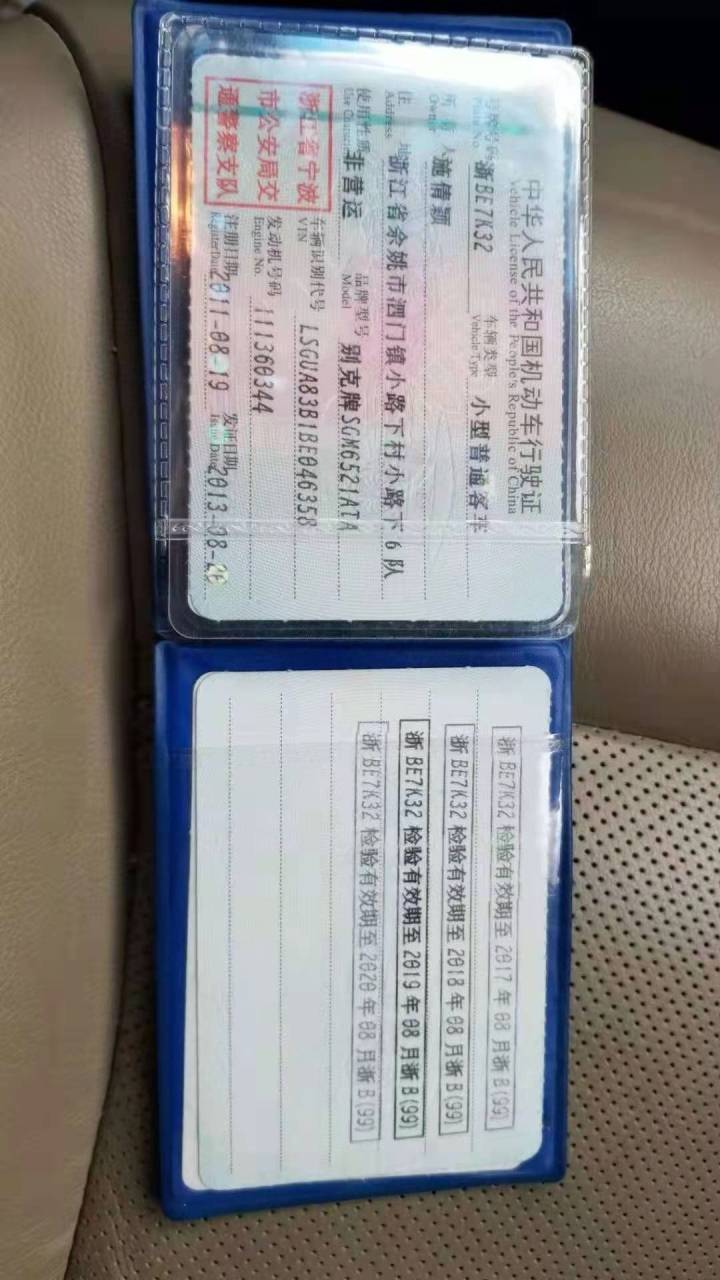 中华人民共和国机动车行驶证
Vehicle License of the People's Republic of China
号牌号码 浙BE7K32 车辆类型 小型普通客车
Plate No. Vehicle Type
所有人 施倩颖
Owner
住址 浙江省余姚市泗门镇小路下村小路下6队
Address
使用性质 非营运 品牌型号 别克牌SGM6521ATA
Use Character Model
浙江省宁波
市公安局交
通警察支队
车辆识别代号 LSGUA83B1BE046358
VIN
发动机号码 111360344
Engine No.
注册日期 2011-08-19 发证日期 2013-08-26
Register Date Issue Date
浙BE7K32 检验有效期至 2017年08月浙B(99)
浙BE7K32 检验有效期至 2018年08月浙B(99)
浙BE7K32 检验有效期至 2019年08月浙B(99)
浙BE7K32 检验有效期至 2020年08月浙B(99)